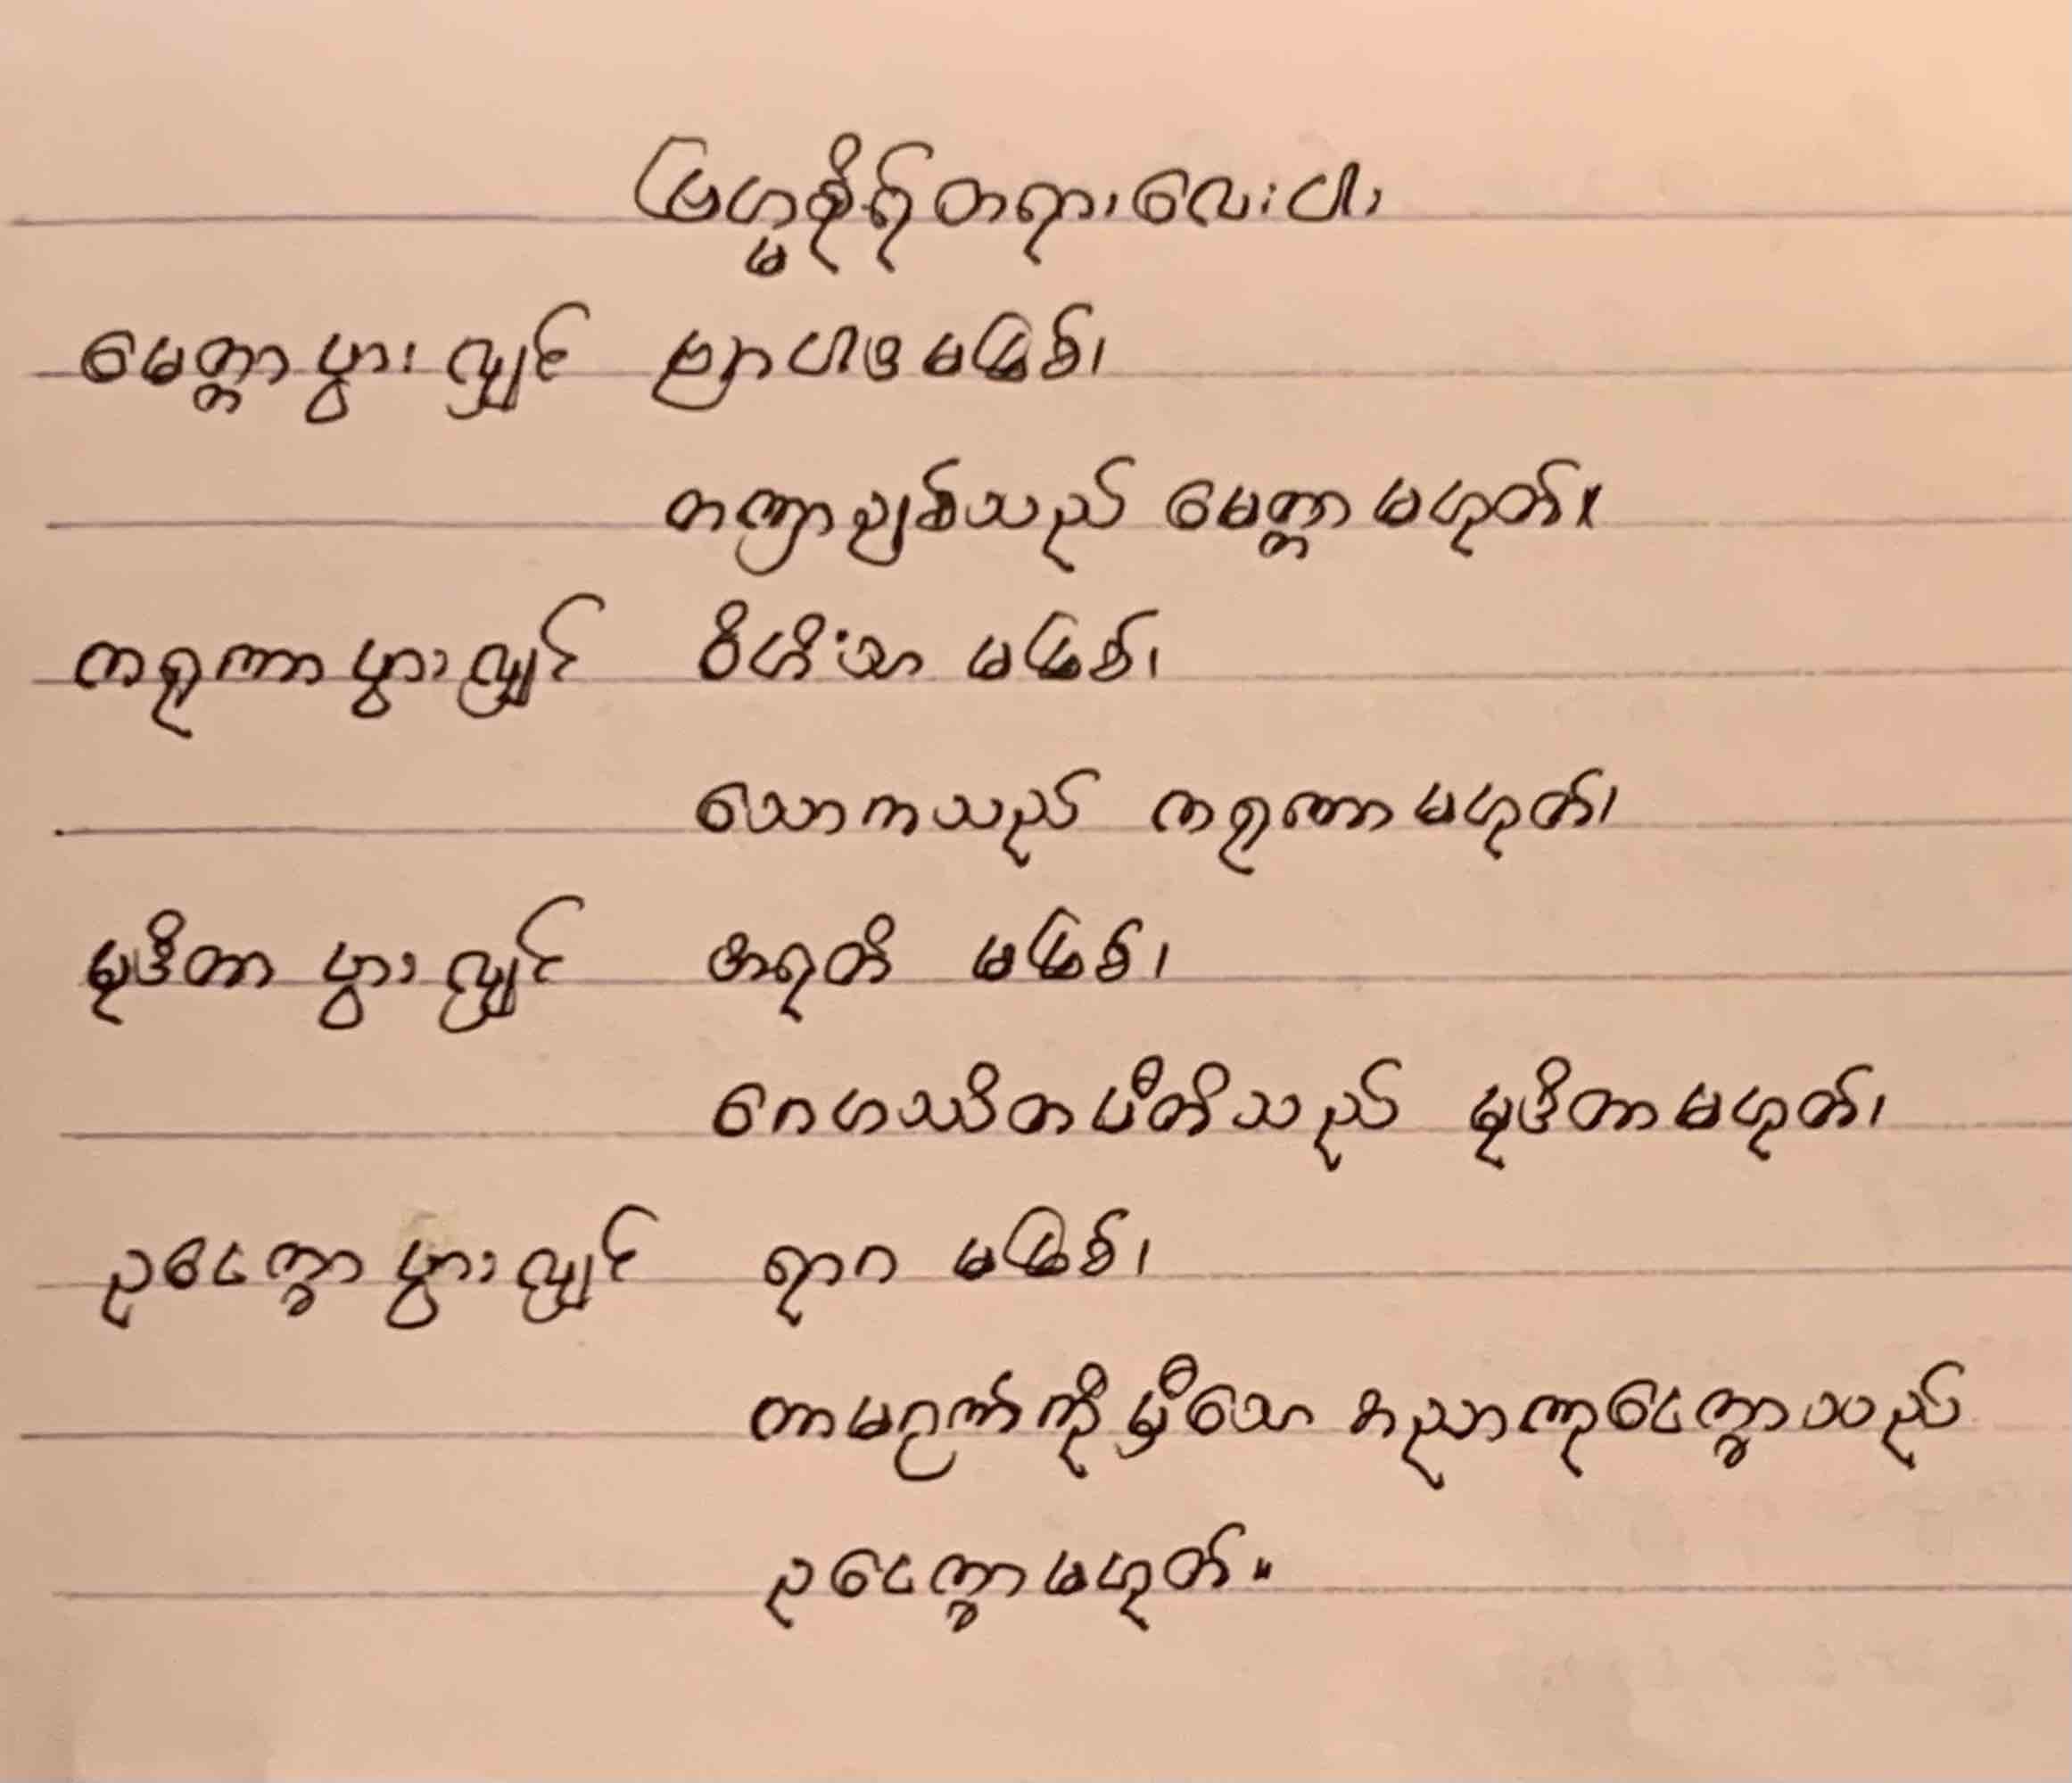 ဗြဟ္မစိုရ်တရားလေးပါး
မေတ္တာပွားလျှင် ဗျာပါဒမဖြစ်၊
တဏှာချစ်သည် မေတ္တာမဟုတ်။
ကရုဏာပွားလျှင် ဝိဟိံသာ မဖြစ်၊
သောကသည် ကရုဏာမဟုတ်၊
မုဒိတာ ပွားလျှင် အရတိ မဖြစ်၊
ဂေဟသိတပီတိသည် မုဒိတာမဟုတ်၊
ဥပေက္ခာပွားလျှင် ရာဂ မဖြစ်၊
ကာမဂုဏ်ကိုမှီသော အညာဏုပေက္ခာသည်
ဥပေက္ခာမဟုတ်။